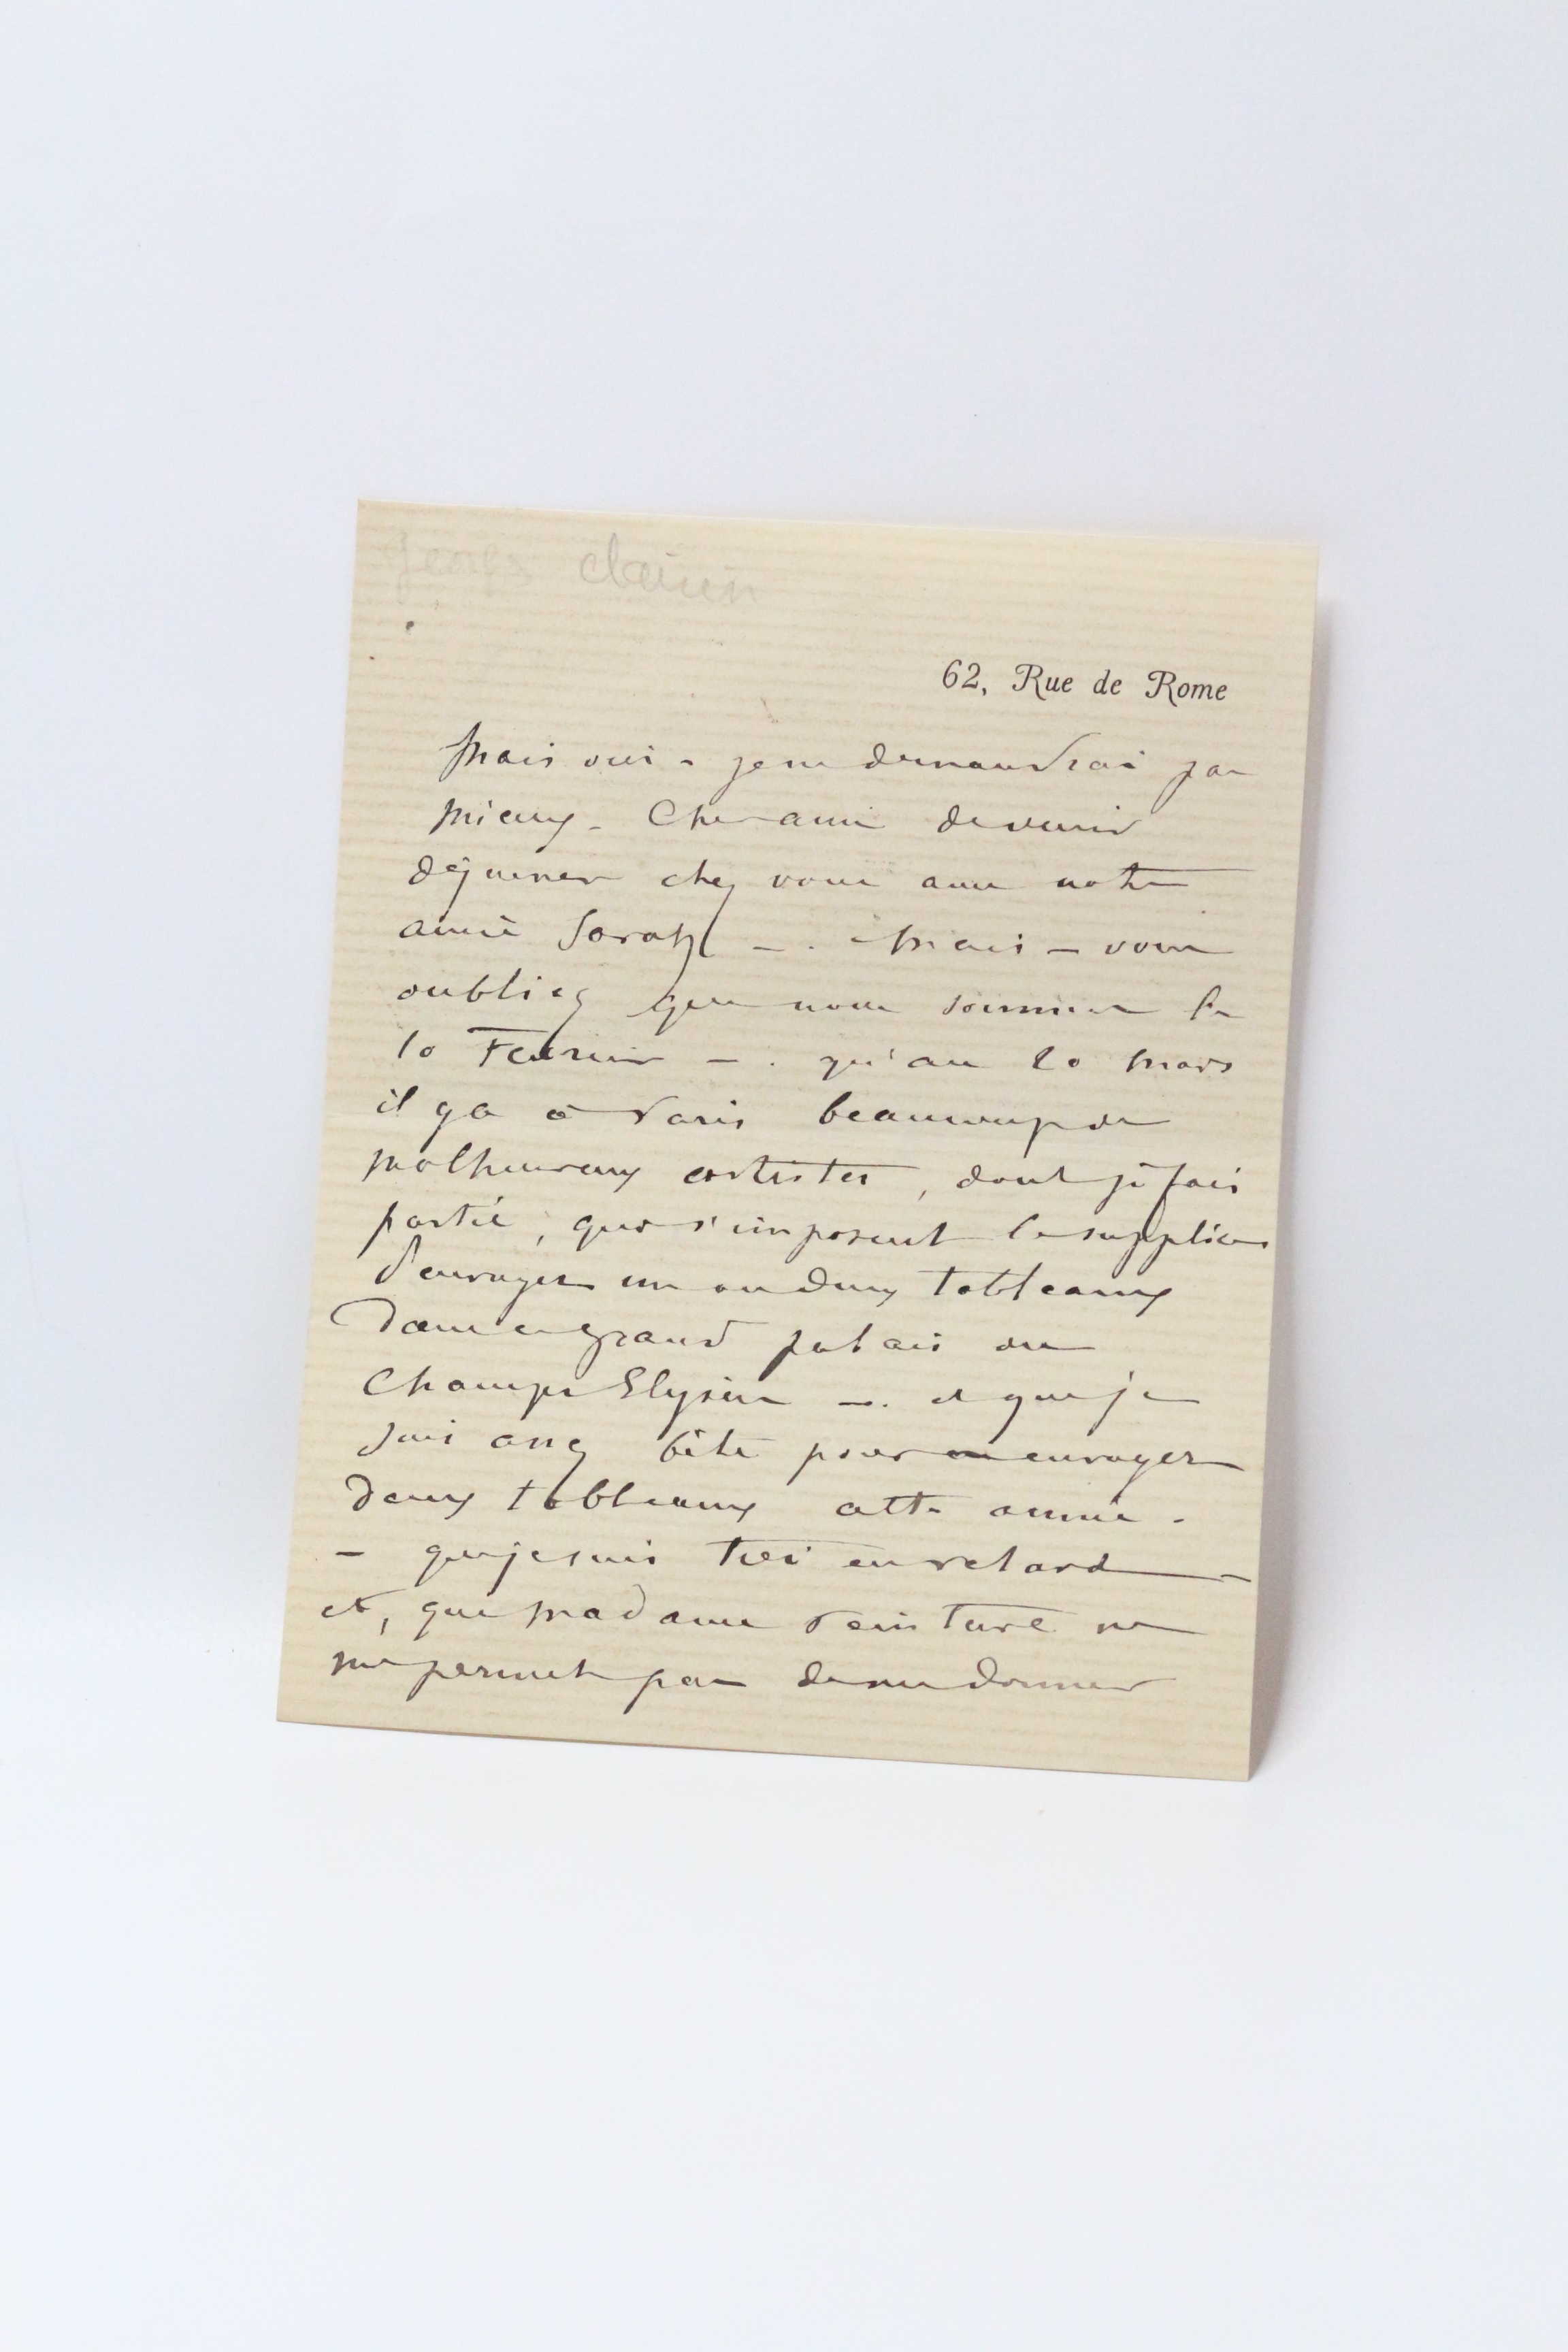 Georges Clairin
62, Rue de Rome
Mais oui - je ne demandrai pas
mieux - Cher ami de venir
déjeuner chez vous avec notre
amie Sarah - . Mais - vous
oubliez que nous sommes le
10 Fevrier - . qu'au 20 mars
il y a à Paris beaucoup de
malheureux artistes, dont je fais
partie, qui s'imposent le supplice
d'envoyer un ou deux tableaux
dans ce grand palais des
Champs Elysées - . et que je
suis assez bête pour envoyer
deux tableaux cette année .
- que je suis très en retard -
et, que Madame Peinture ne
me permet pas de me donner